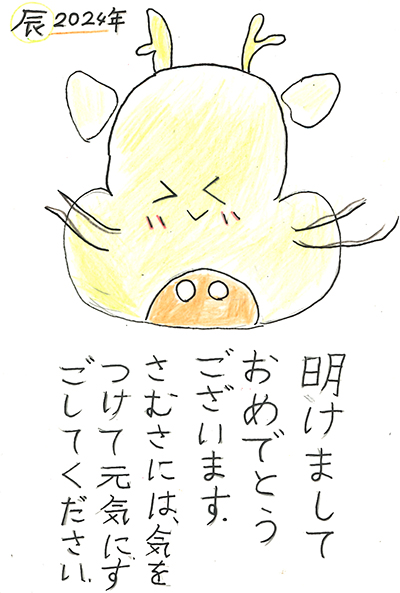 辰 2024年
明けまして
おめでとう
ございます.
さむさには、気を
つけて元気にす
ごしてください.